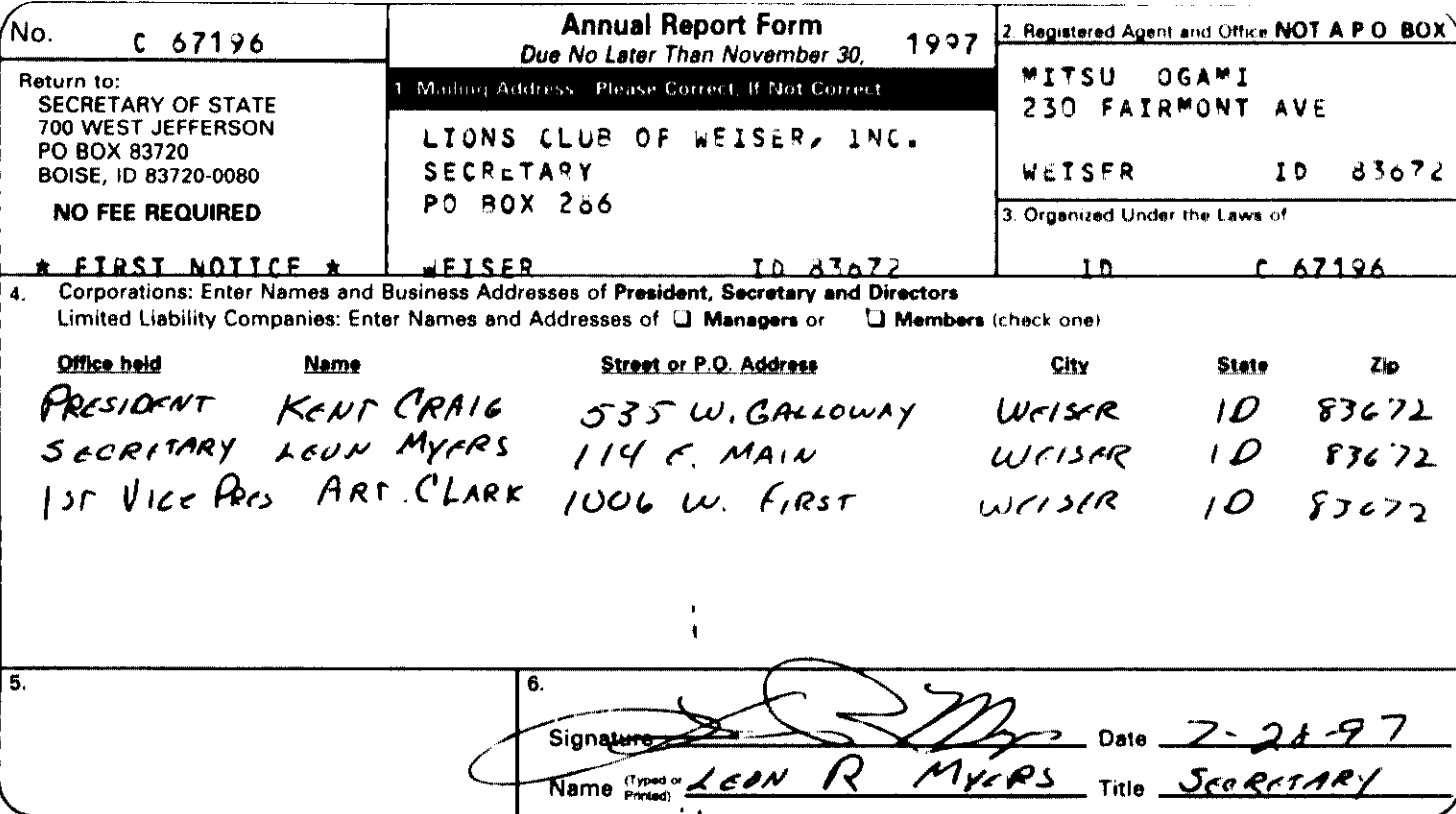 No. C 67196
Return to:
SECRETARY OF STATE
700 WEST JEFFERSON
PO BOX 83720
BOISE, ID 83720-0080
NO FEE REQUIRED
* FIRST NOTICE *
Annual Report Form
Due No Later Than November 30, 1997
1. Mailing Address Please Correct, If Not Correct
LIONS CLUB OF WEISER, INC.
SECRETARY
PO BOX 286
WEISER ID 83672
2. Registered Agent and Office NOT A P O BOX
MITSU OGAMI
230 FAIRMONT AVE
WEISER ID 83672
3. Organized Under the Laws of
ID C 67196
4. Corporations: Enter Names and Business Addresses of President, Secretary and Directors
Limited Liability Companies: Enter Names and Addresses of ❑ Managers or ❑ Members (check one)
Office held Name Street or P.O. Address City State Zip
PRESIDENT KENT CRAIG 535 W. GALLOWAY WEISER ID 83672
SECRETARY LEON MYERS 114 E. MAIN WEISER ID 83672
1ST VICE PRES ART CLARK 1006 W. FIRST WEISER ID 83672
5.
6.
Signature Date 7-28-97
Name (Typed or Printed) LEON R MYERS Title SECRETARY